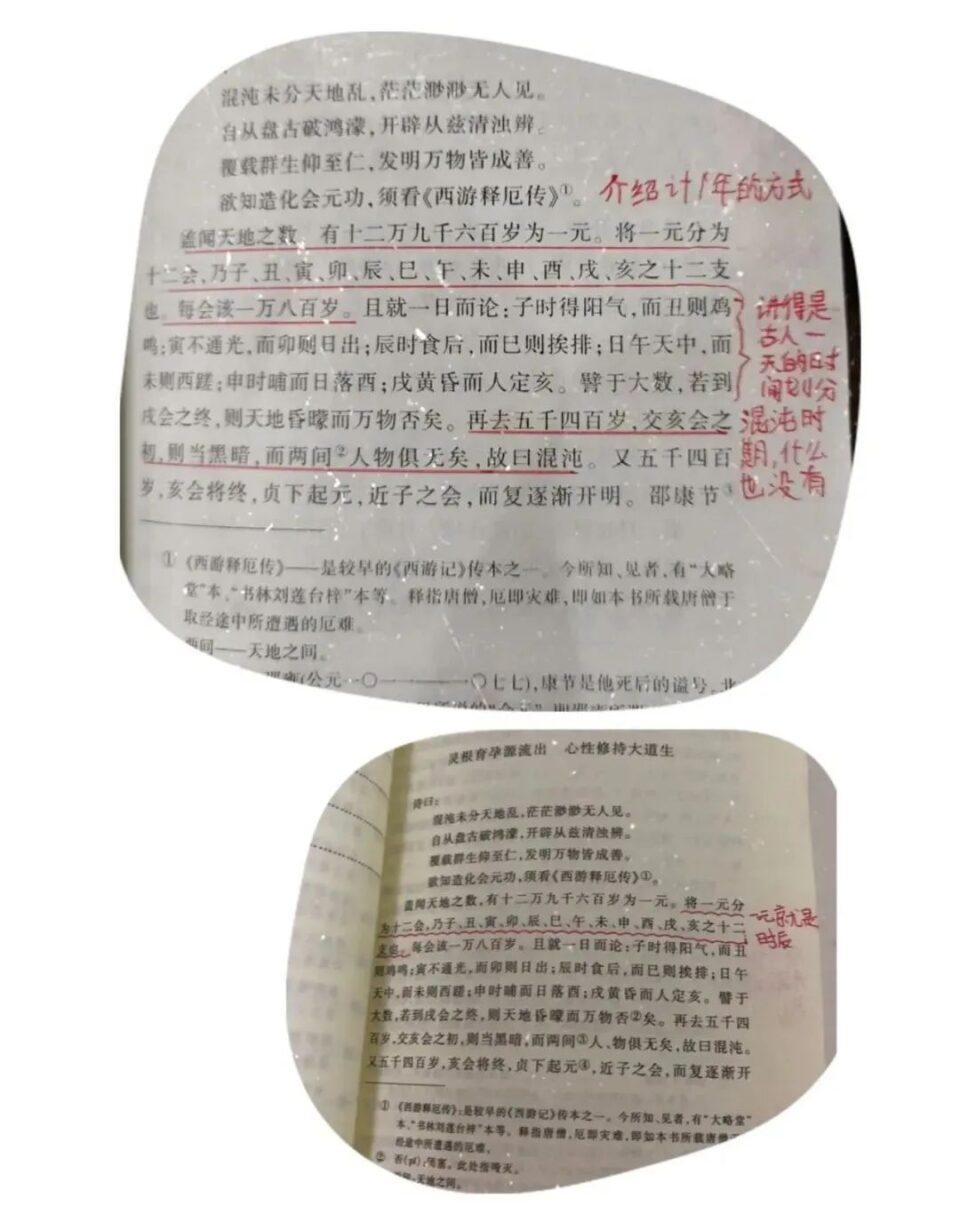 混沌未分天地乱,茫茫渺渺无人见。
自从盘古破鸿濛,开辟从兹清浊辨。
覆载群生仰至仁,发明万物皆成善。
欲知造化会元功,须看《西游释厄传》①。
介绍计1年的方式
盖闻天地之数,有十二万九千六百岁为一元。将一元分为
十二会,乃子、丑、寅、卯、辰、巳、午、未、申、酉、戌、亥之十二支
也。每会该一万八百岁。且就一日而论:子时得阳气,而丑则鸡
鸣;寅不通光,而卯则日出;辰时食后,而巳则挨排;日午天中,而
未则西蹉;申时晡而日落酉;戌黄昏而人定亥。譬于大数,若到
戌会之终,则天地昏曚而万物否矣。再去五千四百岁,交亥会之
初,则当黑暗,而两间②人物俱无矣,故曰混沌。又五千四百
岁,亥会将终,贞下起元,近子之会,而复逐渐开明。邵康节③
讲得是
古人一
天的日时
间划分
混沌时
期,什么
也没有
① 《西游释厄传》——是较早的《西游记》传本之一。今所知、见者,有“大略
堂”本、“书林刘莲台梓”本等。释指唐僧,厄即灾难,即如本书所载唐僧于
取经途中所遭遇的厄难。
两间——天地之间。
(公元一〇一一——一〇七七),康节是他死后的谥号。北
灵根育孕源流出 心性修持大道生
诗曰:
混沌未分天地乱,茫茫渺渺无人见。
自从盘古破鸿濛,开辟从兹清浊辨。
覆载群生仰至仁,发明万物皆成善。
欲知造化会元功,须看《西游释厄传》①。
盖闻天地之数,有十二万九千六百岁为一元。将一元分
为十二会,乃子、丑、寅、卯、辰、巳、午、未、申、酉、戌、亥之十二
支也。每会该一万八百岁。且就一日而论:子时得阳气,而丑
则鸡鸣;寅不通光,而卯则日出;辰时食后,而巳则挨排;日午
天中,而未则西蹉;申时晡而日落酉;戌黄昏而人定亥。譬于
大数,若到戌会之终,则天地昏曚而万物否②矣。再去五千四
百岁,交亥会之初,则当黑暗,而两间③人、物俱无矣,故曰混沌。
又五千四百岁,亥会将终,贞下起元④,近子之会,而复逐渐开
一元就是
时后
① 《西游释厄传》:是较早的《西游记》传本之一。今所知、见者,有“大略堂”
本、“书林刘莲台梓”本等。释指唐僧,厄即灾难,即如本书所载唐僧
经途中所遭遇的厄难。
② 否(pǐ):闭塞。此处指嗳灭。
天地之间。